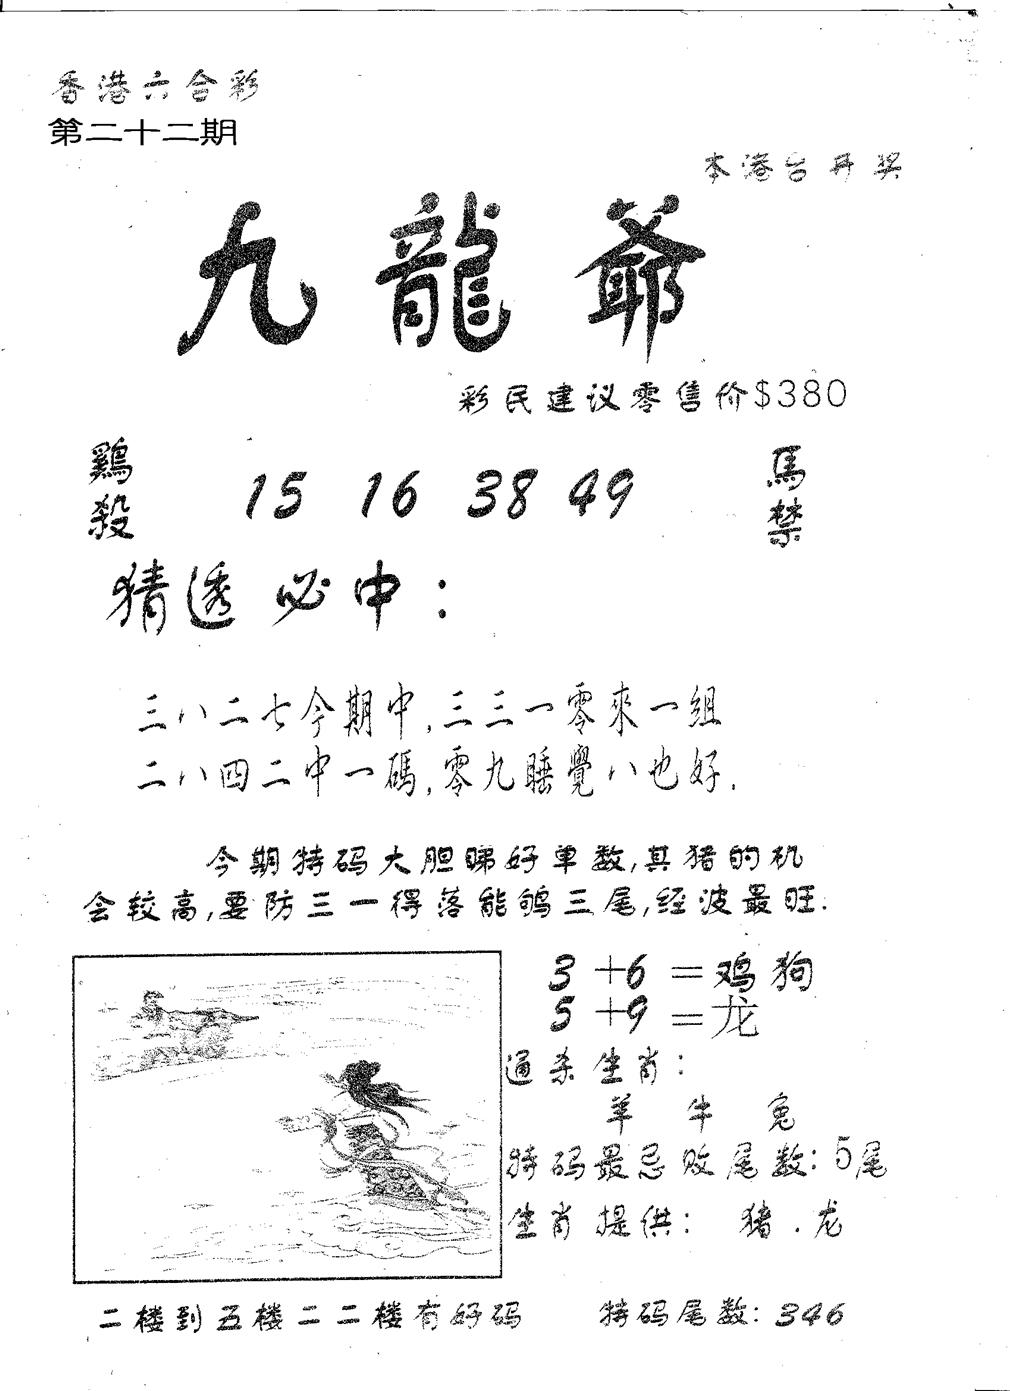 香港六合彩
第二十二期
本港台开奖
九龍爺
彩民建议零售价$380
鷄殺 15 16 38 49 馬禁
猜透必中：
三八二七今期中,三三一零來一組
二八四二中一碼,零九睡覺八也好.
今期特码大胆睇好单数,其猪的机
会较高,要防三一得落能鸲三尾,经波最旺.
3+6=鸡狗
5+9=龙
通杀生肖：
羊 牛 兔
特码最忌败尾数：5尾
生肖提供： 猪．龙
二楼到五楼二二楼有好码 特码尾数：346